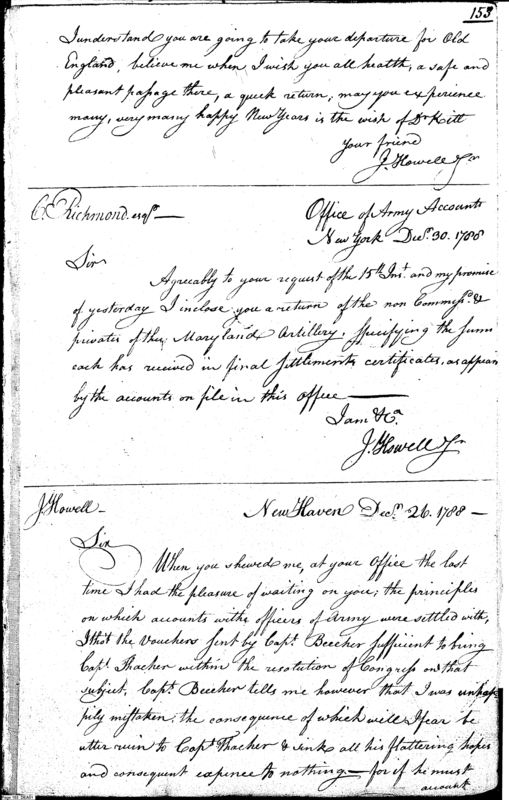 153
I understand you are going to take your departure for Old
England, believe me when I wish you all health, a safe and
pleasant passage there, a quick return; may you experience
many, very many happy New Years is the wish of Dr Kitt
Your friend
J. Howell Jnr
C. Richmond. esqr.—
Office of Army Accounts
New York Decr. 30. 1788
Sir
Agreeably to your request of the 15th. Inst. and my promise
of yesterday I inclose you a return of the non Commissd. &
privates of the Maryland Artillery. specifying the sums
each has received in final settlements certificates, as appears
by the accounts on file in this office —
I am &ca.
J. Howell Jnr
J. Howell —
New Haven Decr. 26. 1788 —
Sir
When you shewed me, at your Office the last
time I had the pleasure of waiting on you; the principles
on which accounts withe officers of Army were settled with,
I thot the Vouchers sent by Capt. Beecher sufficient to bring
Capt. Thacher within the resolution of Congress on that
subject. Capt. Beecher tells me however that I was unhap-
pily mistaken; the consequence of which will I fear be
utter ruin to Capt Thacher & sink all his flattering hopes
and consequent expence to nothing. — for if he must
account